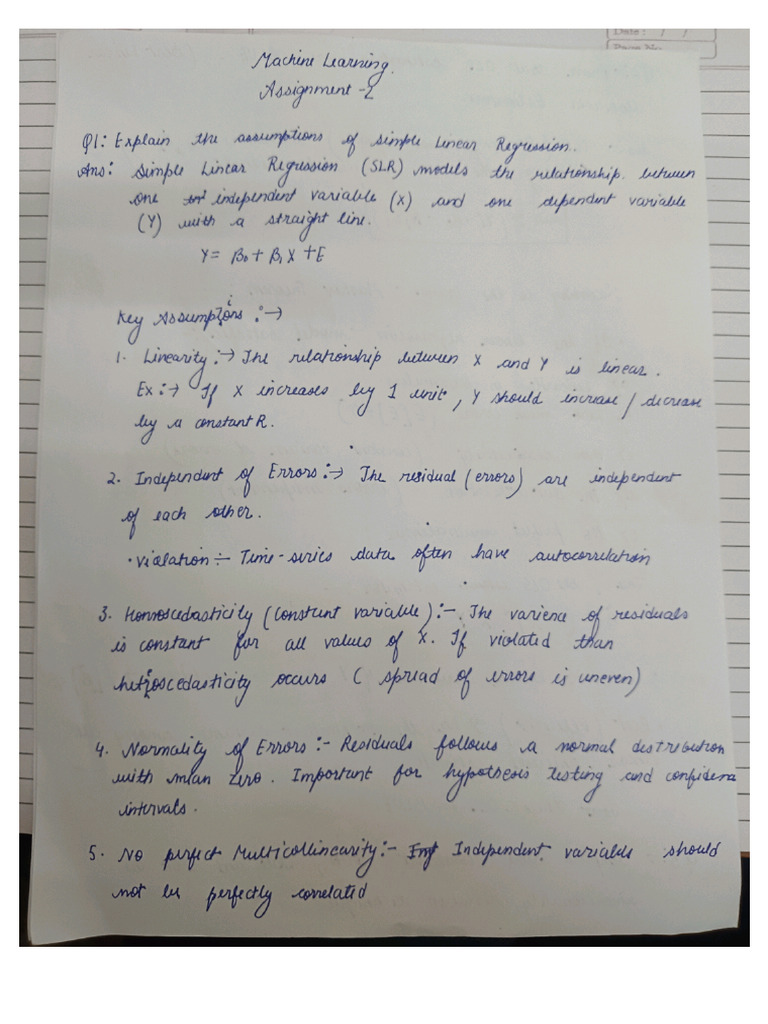 Date: / /
Page No.
Machine Learning.
Assignment-2
Q1: Explain the assumptions of simple Linear Regression.
Ans: Simple Linear Regression (SLR) models the relationship between
one independent variable (X) and one dependent variable
(Y) with a straight line.
Y = β₀ + β₁ X + E
Key Assumptions :→
1. Linearity :→ The relationship between X and Y is linear.
Ex :→ If X increases by 1 unit, Y should increase / decrease
by a constant R.
2. Independent of Errors :→ The residual (errors) are independent
of each other.
• Violation ÷ Time-series data often have autocorrelation
3. Homoscedasticity (constant variable) :- The varience of residuals
is constant for all values of X. If violated than
heteroscedasticity occurs ( spread of errors is uneven)
4. Normality of Errors :- Residuals follows a normal distribution
with mean zero. Important for hypothesis testing and confidence
intervals.
5. No perfect Multicollinearity :- Independent variable should
not be perfectly correlated